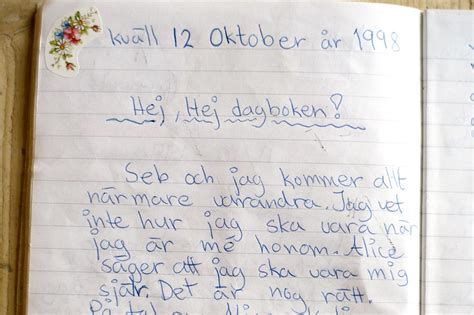 kväll 12 Oktober år 1998
Hej, Hej dagboken!
Seb och jag kommer allt
närmare varandra. Jag vet
inte hur jag ska vara när
jag är mé honom. Alice
säger att jag ska vara mig
själ. Det är nog rätt.